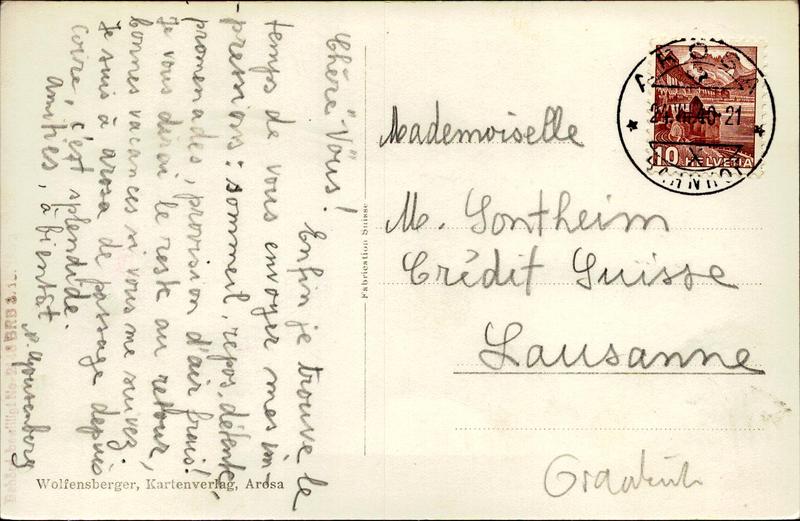 Chère "Vous"!
Enfin je trouve le
temps de vous envoyer mes im-
pressions: sommeil, repos, détente,
promenades, provision d'air frais!
Je vous dirai le reste au retour,
bonnes vacances si vous me suivez.
Je suis à arosa de passage depuis
Coire, c'est splendide.
amitiés, à bientôt
Fabrication Suisse
Wolfensberger, Kartenverlag, Arosa
AROSA
40-21
10 HELVETIA
Mademoiselle
M. Sontheim
Crédit Suisse
Lausanne